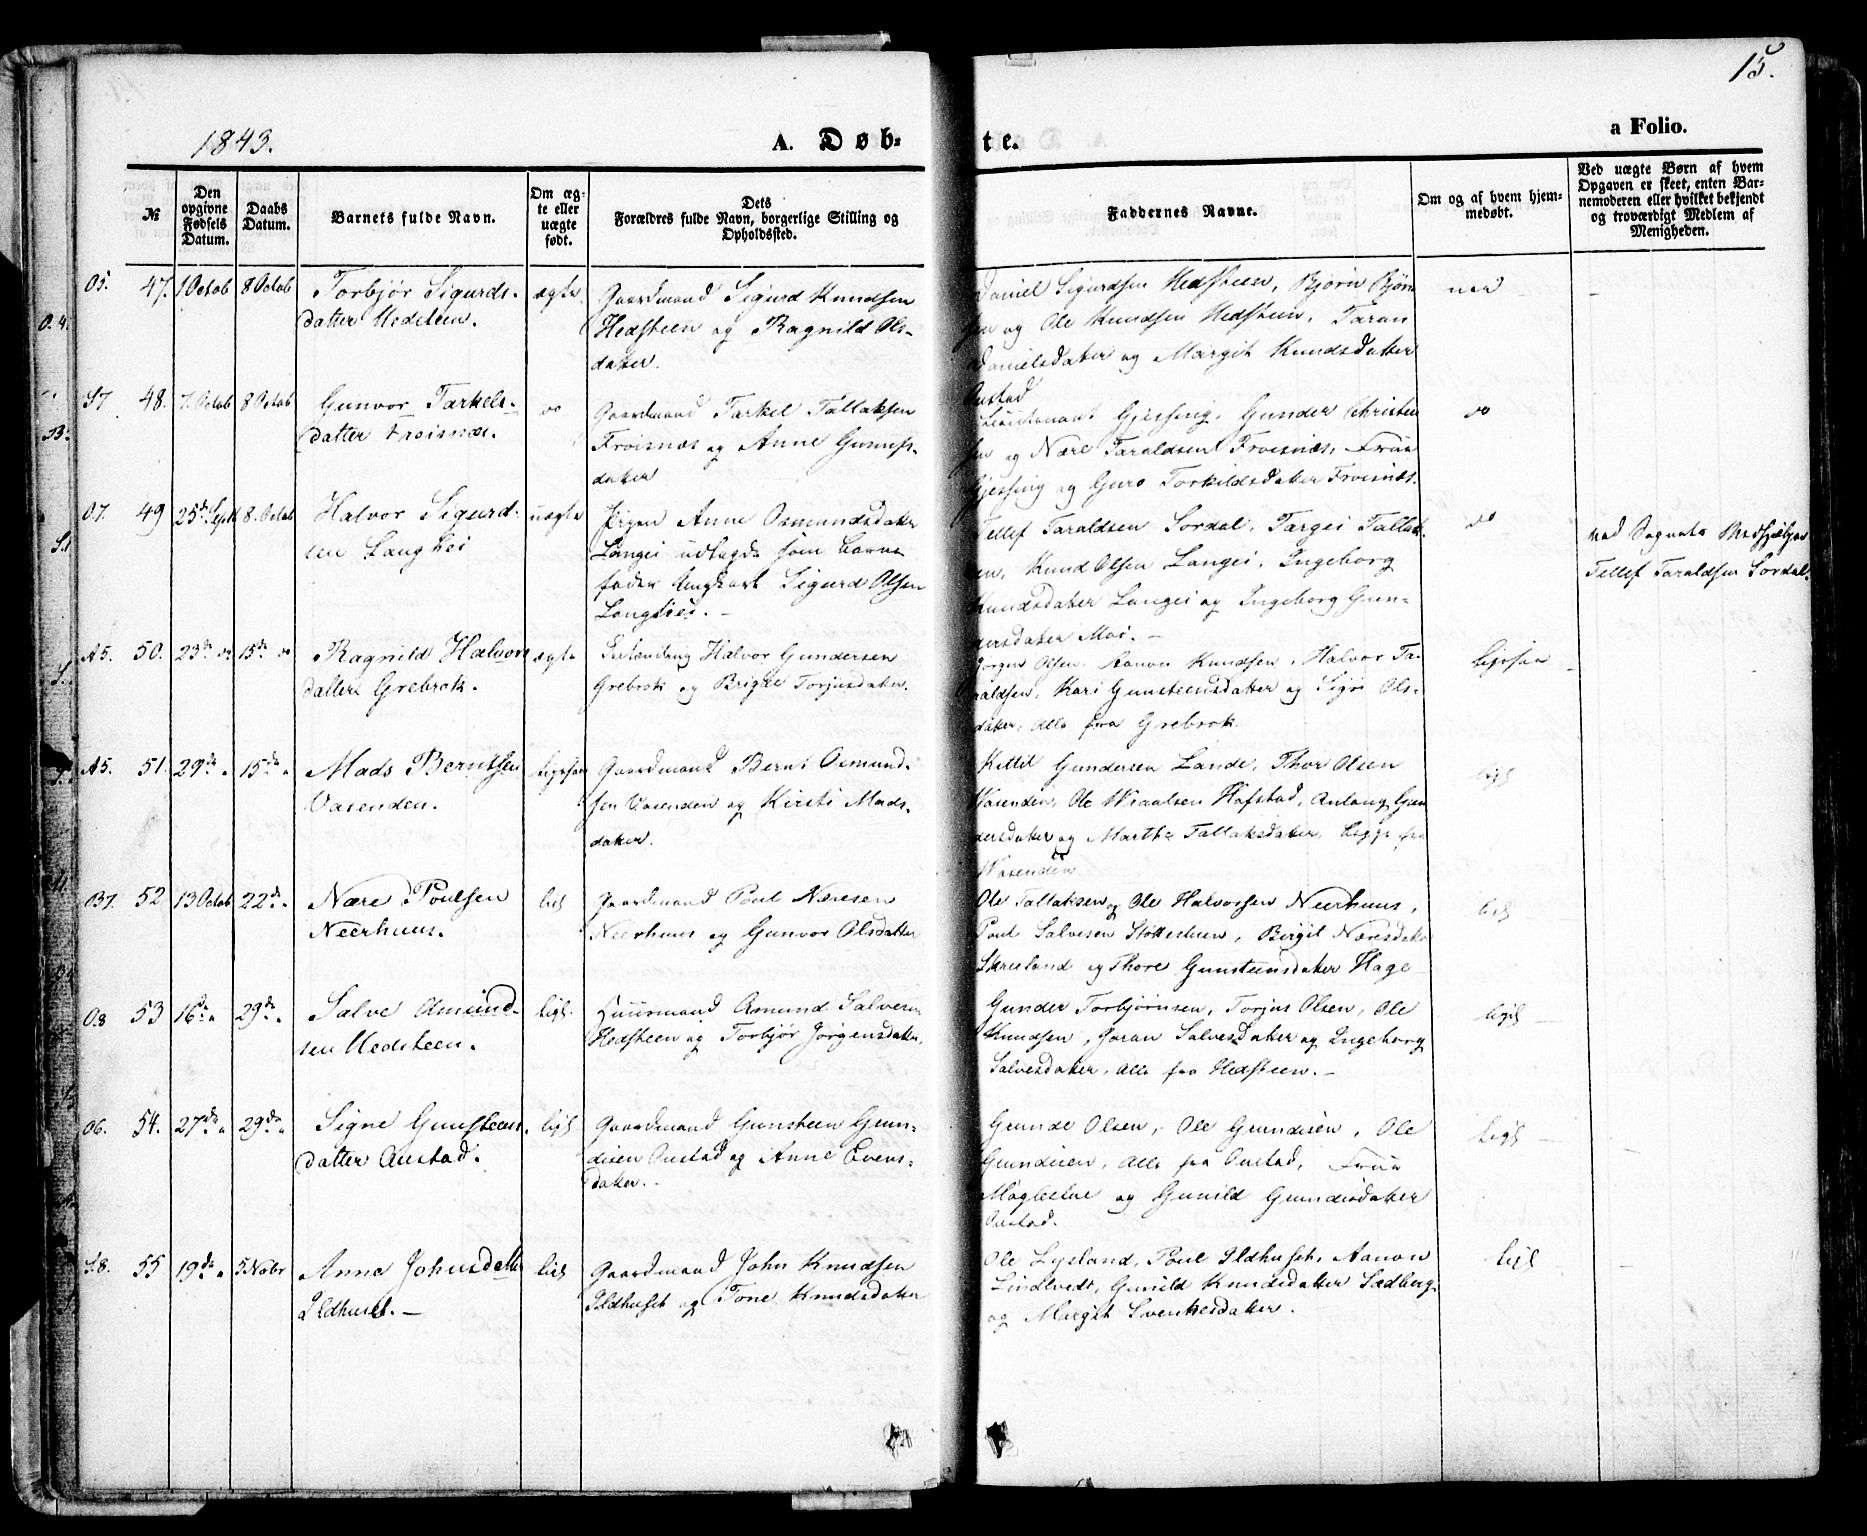 15.
1843.
A. Døb-
te.
a Folio.
№
Den opgivne Fødsels Datum.
Daabs Datum.
Barnets fulde Navn.
Om ægte eller uægte født.
Dets Forældres fulde Navn, borgerlige Stilling og Opholdssted.
Faddernes Navne.
Om og af hvem hjemmedøbt.
Ved uægte Børn af hvem Opgaven er skeet, enten Barnemoderen eller hvilket bekjendt og troværdigt Medlem af Menigheden.
O5. 47. 1 Octob 8 Octob
Torbjør Sigurds-
datter Hedsteen.
ægte
Gaardmand Sigurd Knudsen
Hedsteen og Ragnild Ols-
datter.
Daniel Sigurdsen Hedsteen, Bjørn Bjørn
sen og Ole Knudsen Hedsteen, Taran
Danielsdatter og Margit Knudsdatter
Oustad
S7 48. 7. Octob 8 Octob
Gunvor Tarkels-
datter Froisnæs.
do
Gaardmand Tarkel Tallaksen
Froisnæs og Anne Gunufs-
datter
Lieutenant Gjessing, Gunder Christen
sen og Nære Taraldsen Froisnæs, Frue
Gjessing og Guro Torkildsdatter Froisnæs.
do
O7. 49 25de Sept 8. Octob
Halvor Sigurd-
sen Langhei
uægte
Pigen Anne Osmundsdatter
Langei udlagde som barne
fader Ungkarl Sigurd Olsen
Langhei. -
Tellef Taraldsen Sordal, Targei Tallak-
en, Knud Olsen Langei, Ingeborg
Knudsdatter Langei og Ingeborg Gun-
dersdatter Moi. -
do
ved Sognets Medhjælper
Tellef Taraldsen Sordal.
A5. 50. 23de do 15de do
Ragnild Halvors
datter Grebrok.
ægte
Halvor Gundersen
Grebrok og Torjusdatter.
Jørgen Olsen, Aanon Knudsen, Halvor Ta-
raldsen, Kari Gunsteensdatter og Sigri Ols-
datter, alle fra Grebrok.
ligesaa
A5. 51. 29de " 15de "
Mads Berntsen
Vasenden.
ligesaa
Gaardmand Bernt Osmund-
sen Vasenden og Kirsti Mads-
datter.
Kittil Gundersen Lande, Thor Olsen
Vasenden, Ole Hofstad, Gun
dersdatter og Marthe Tallaksdatter, begge fra
Vasenden
ligl
B7. 52 13 Octob 22de "
Nære Poulsen
Neerhuus.
ligl
Gaardmand Poul Næresen
Neerhuus og Gunvor Olsdatter
Ole Tallaksen og Ole Halvorsen Neerhuus,
Poul Salvesen, Birgit Næresdatter
Skreeland og Thore Gunsteensdatter Hage
ligl
O8 53 16de " 29de "
Salve Amund-
sen Hedsteen.
ligl.
Huusmand Amund Salvesen
Hedsteen og Torbjør Jørgensdatter.
Gunder Torbjørnsen, Torjus Olsen, Ole
Knudsen, Joran Salvesdatter og Ingeborg
Salvesdatter, alle fra Hedsteen. -
ligl
O6. 54. 27de " 29de "
Signe Gunsteens-
datter Oustad.
ligl
Gaardmand Gunsteen Gun-
disen Oustad og Anne Evens-
datter.
Grunde Olsen, Ole Grundesen, Ole
Gundesen, alle fra Oustad, Frue
Møglestue og Gunild Grundesdatter
Oustad.
ligl
S.8. 55 19de " 5 Nobr
Anne Johnsdatter
Ildhuset. -
ligl
Gaardmand John Knudsen
Ildhuset og Tone Knudsdatter
Ole Lysland, Poul Ildhuset, Aanon
Lindtvedt, Gunild Knudsdatter Sædberg
og Margit Svenkesdatter.
ligl